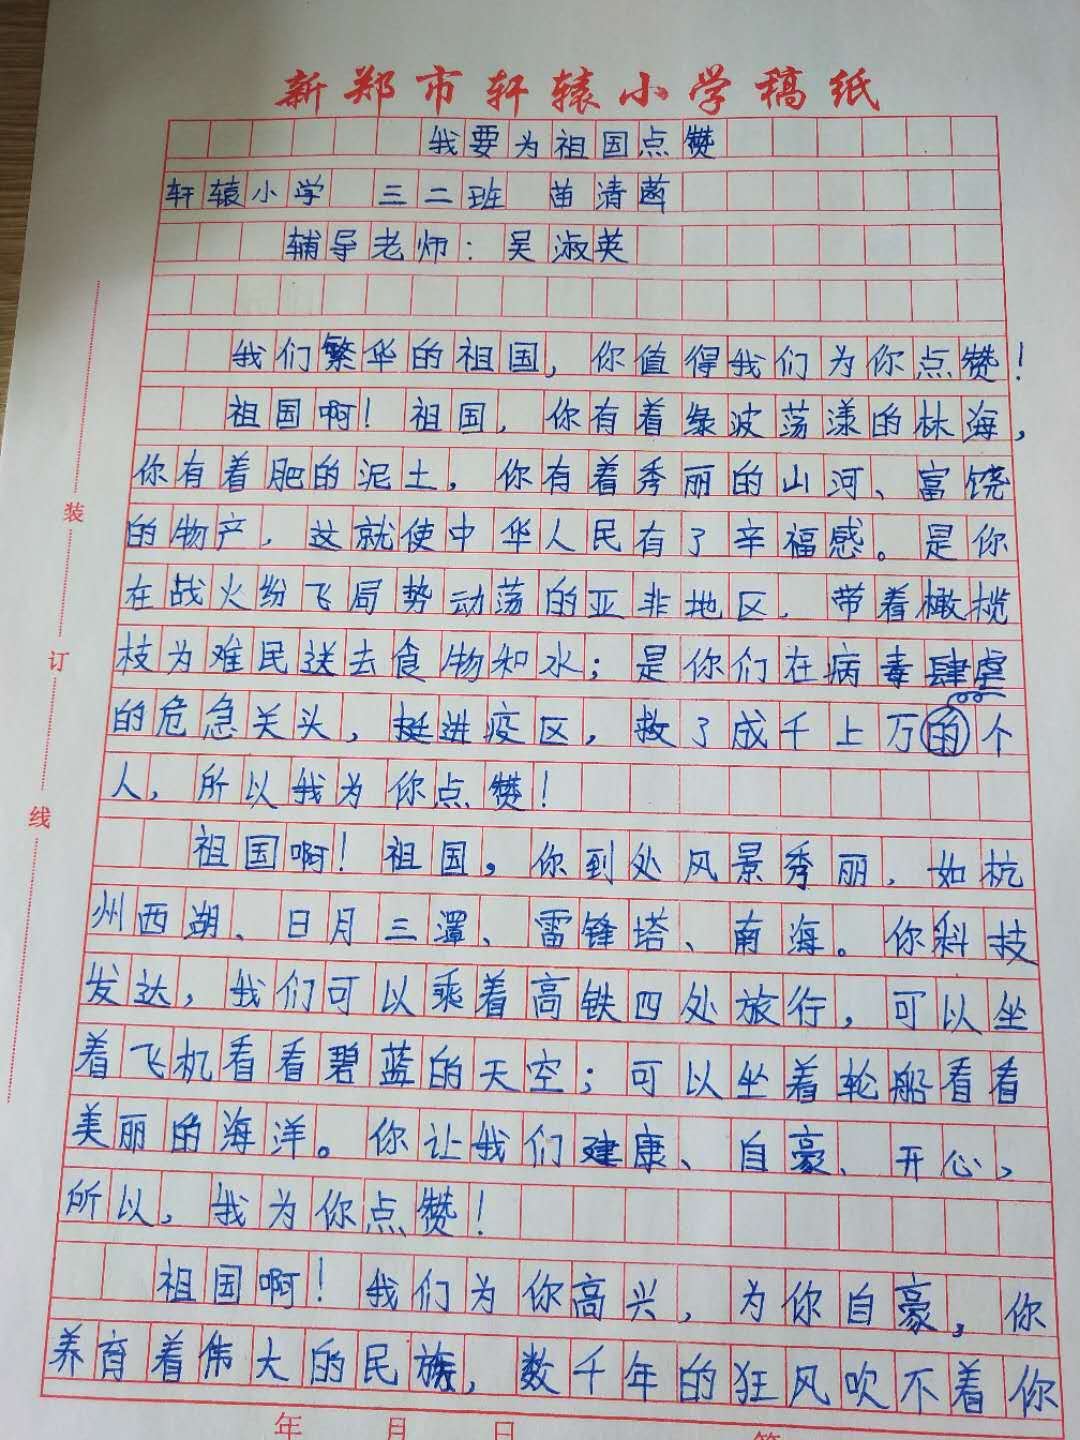 新郑市轩辕小学稿纸
我要为祖国点赞
轩辕小学 三二班 苗清菡
辅导老师：吴淑英
我们繁华的祖国，你值得我们为你点赞！
祖国啊！祖国，你有着绿波荡漾的林海，
你有着肥的泥土，你有着秀丽的山河、富饶
的物产，这就使中华人民有了辛福感。是你
在战火纷飞局势动荡的亚非地区，带着橄榄
枝为难民送去食物和水；是你们在病毒肆虐
的危急关头，挺进疫区，救了成千上万的个
人，所以我为你点赞！
祖国啊！祖国。你到处风景秀丽，如杭
州西湖、日月三潭、雷锋塔、南海。你科技
发达，我们可以乘着高铁四处旅行，可以坐
着飞机看看碧蓝的天空；可以坐着轮船看看
美丽的海洋。你让我们建康、自豪、开心，
所以，我为你点赞！
祖国啊！我们为你高兴，为你自豪，你
养育着伟大的民族，数千年的狂风吹不着你
装
订
线
年 月 日